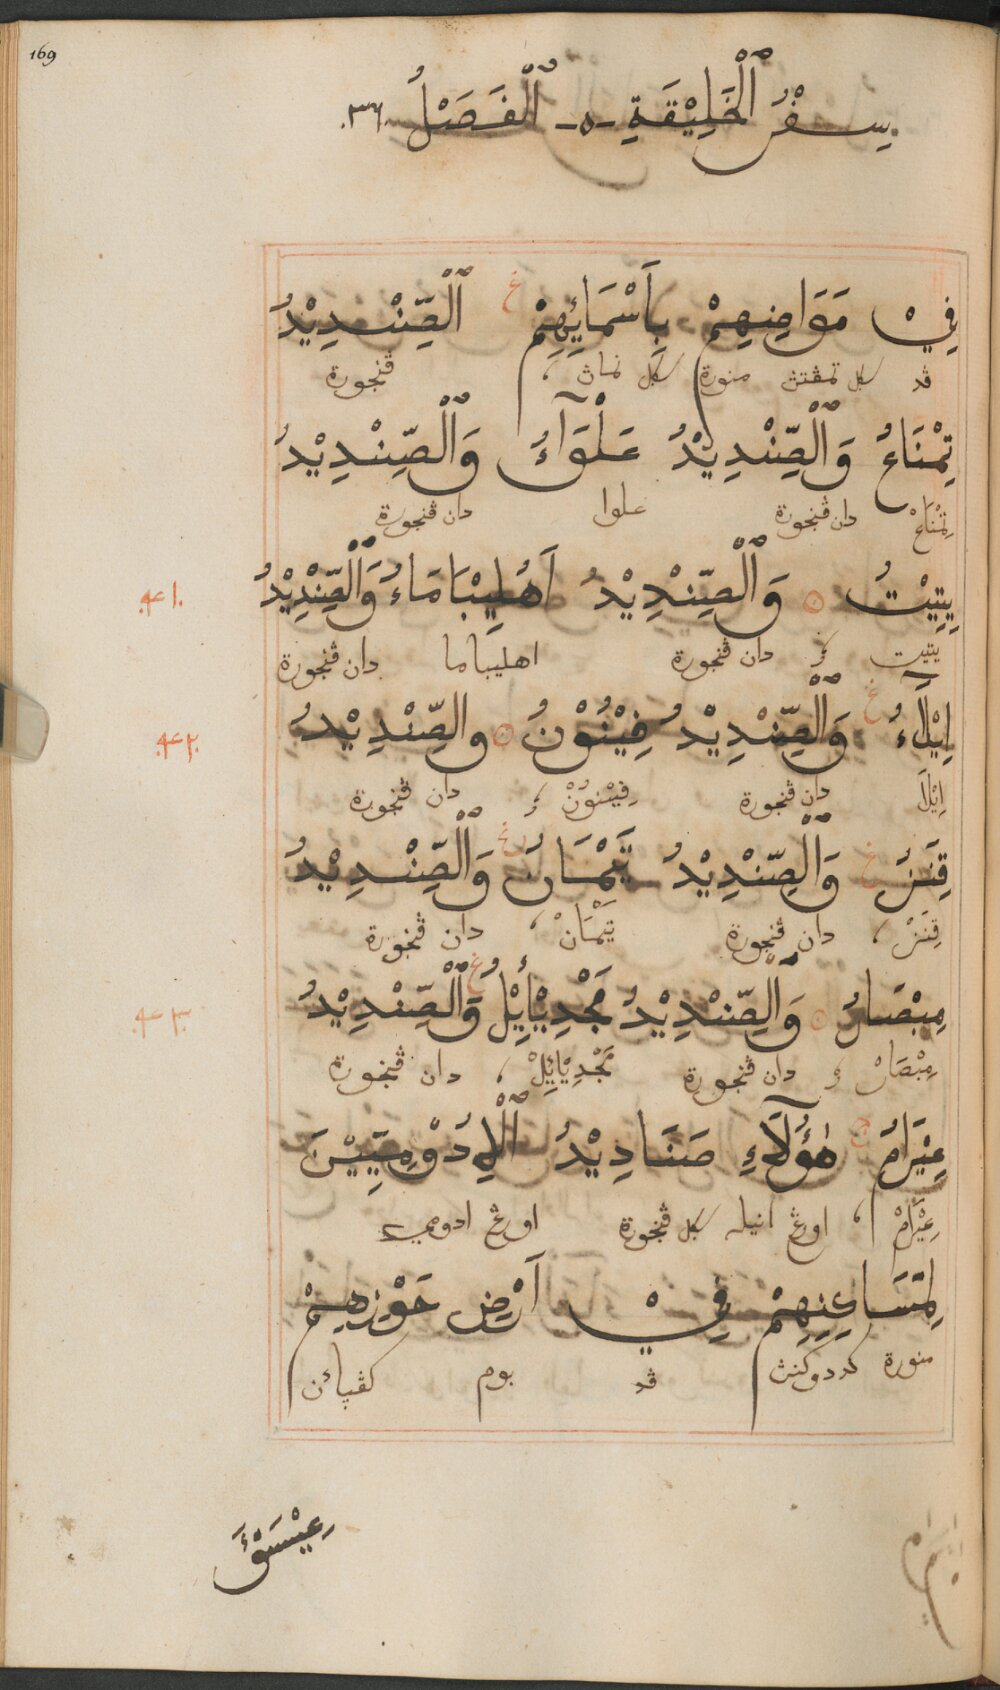 169
سِفْرُ ٱلْخَلِيْقَةِ -٥- ٱلْفَصَلْ .٣٦.
فِيْ مَوَاضِنِهِمْ بِاَسْمَائِهِمْ غ اَلصِّنْدِيْدُ
ڤد سكل تمڤتڽ منورة سكل نماڽ ، ڤڠجورة
تِمْنَاعُ وَالصِّنْدِيْدُ عَلْوَآءُ وَالصِّنْدِيْدُ
تِمْنَاعْ دان ڤڠجورة علوا دان ڤڠجورة
يِتِيْتُ ۞ وَالصِّنْدِيْدُ اَهُلِيْبَامَاءُ وَالصِّنْدِيْدُ
.٤١.
يتيت دان ڤڠجورة اهليباما دان ڤڠجورة
اِيْلَآءُ غ وَالصِّنْدِيْدُ فِيْنُوْنُ ۞ والصِّنْدِيْدُ
.٤٢.
اِيْلَا دان ڤڠجورة فِيْنوُنْ دان ڤڠجورة
قِنَزُ غ وَالصِّنْدِيْدُ تَيْمَانُ غ وَالصِّنْدِيْدُ
قِنَزْ ، دان ڤڠجورة تَيْمَانْ ، دان ڤڠجورة
مِبْصَارُ ۞ وَالصِّنْدِيْدُ مَجْدِيْأَيِلُ غ وَالصِّنْدِيْدُ
.٤٣.
مِبْصَارْ دان ڤڠجورة مَجْدِيْائِلْ ، دان ڤڠجورة
عِيْرَامُ هٰؤُلَآءِ صَنَادِيْدُ الْاِدُوْمِيِّيْنَ
عِيْرَامْ ، اورڠ انيله سكل ڤڠجورة اورڠ ادومي٢
لِمَسَاكِنِهِمْ فِيْ اَرْضِ حَوْزِهِمْ
منورة كدودوكنڽ ڤد بوم كڤپائن
عِيْسَوْ